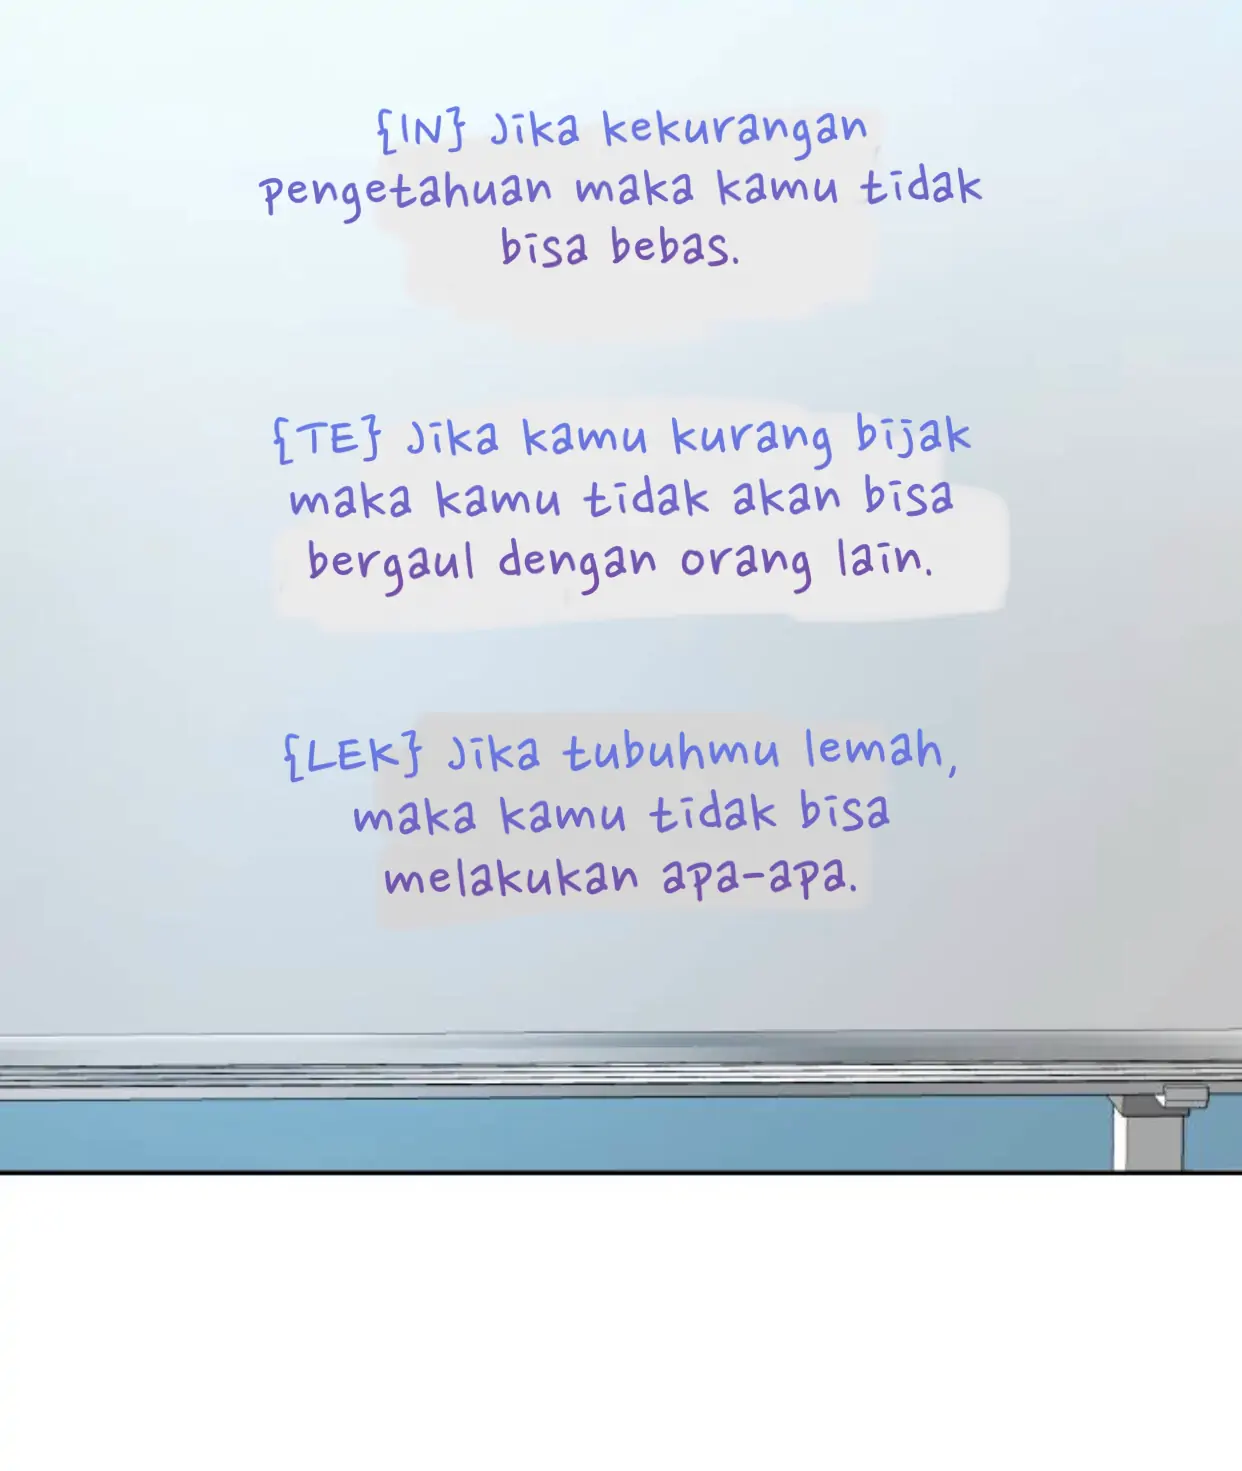 {IN} Jika kekurangan
pengetahuan maka kamu tidak
bisa bebas.
{TE} Jika kamu kurang bijak
maka kamu tidak akan bisa
bergaul dengan orang lain.
{LEK} Jika tubuhmu lemah,
maka kamu tidak bisa
melakukan apa-apa.